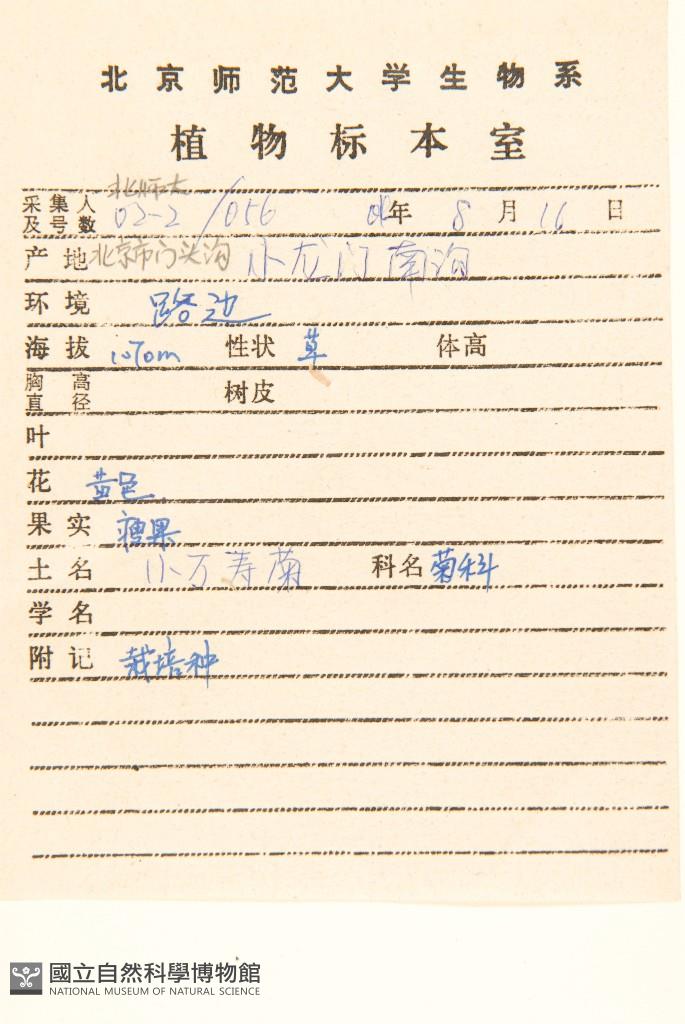 北京师范大学生物系
植物标本室
采集人及号数 北师大 02-2/056 年 8 月 16 日
产地 北京市门头沟 小龙门南沟
环境 路边
海拔 1070m 性状 草 体高
胸高直径 树皮
叶
花 黄色
果实 瘦果
土名 小万寿菊 科名 菊科
学名
附记 栽培种
國立自然科學博物館
NATIONAL MUSEUM OF NATURAL SCIENCE